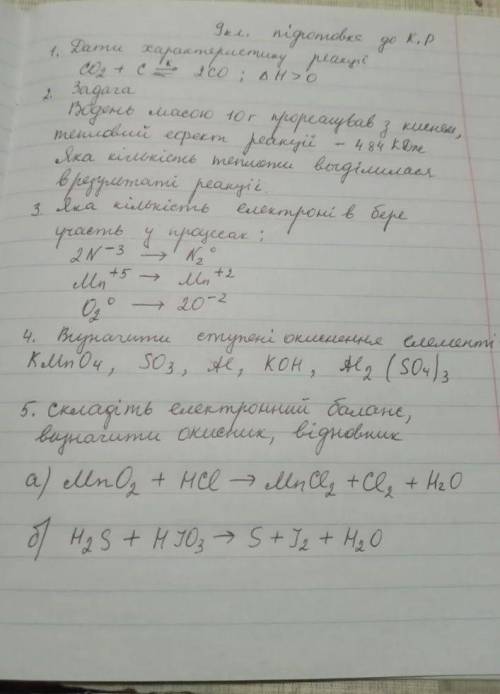 9кл. підготовка до К.Р
1. Дати характеристику реакції
CO2 + C ⇌ к 2CO ; ΔH>0
2. Задача
Водень масою 10г прореагував з киснем,
тепловий ефект реакції - 484 КДж
Яка кількість теплоти выділилася
в результаті реакції.
3. Яка кількість електронів бере
участь у процесах:
2N⁻³ → N2⁰
Mn⁺⁵ → Mn⁺²
O2⁰ → 2O⁻²
4. Визначити ступені окиснення елементи
KMnO4, SO3, Al, KOH, Al2(SO4)3
5. Складіть електронний баланс,
визначити окисник, відновник
а) MnO2 + HCl → MnCl2 + Cl2 + H2O
б) H2S + HJO3 → S + J2 + H2O